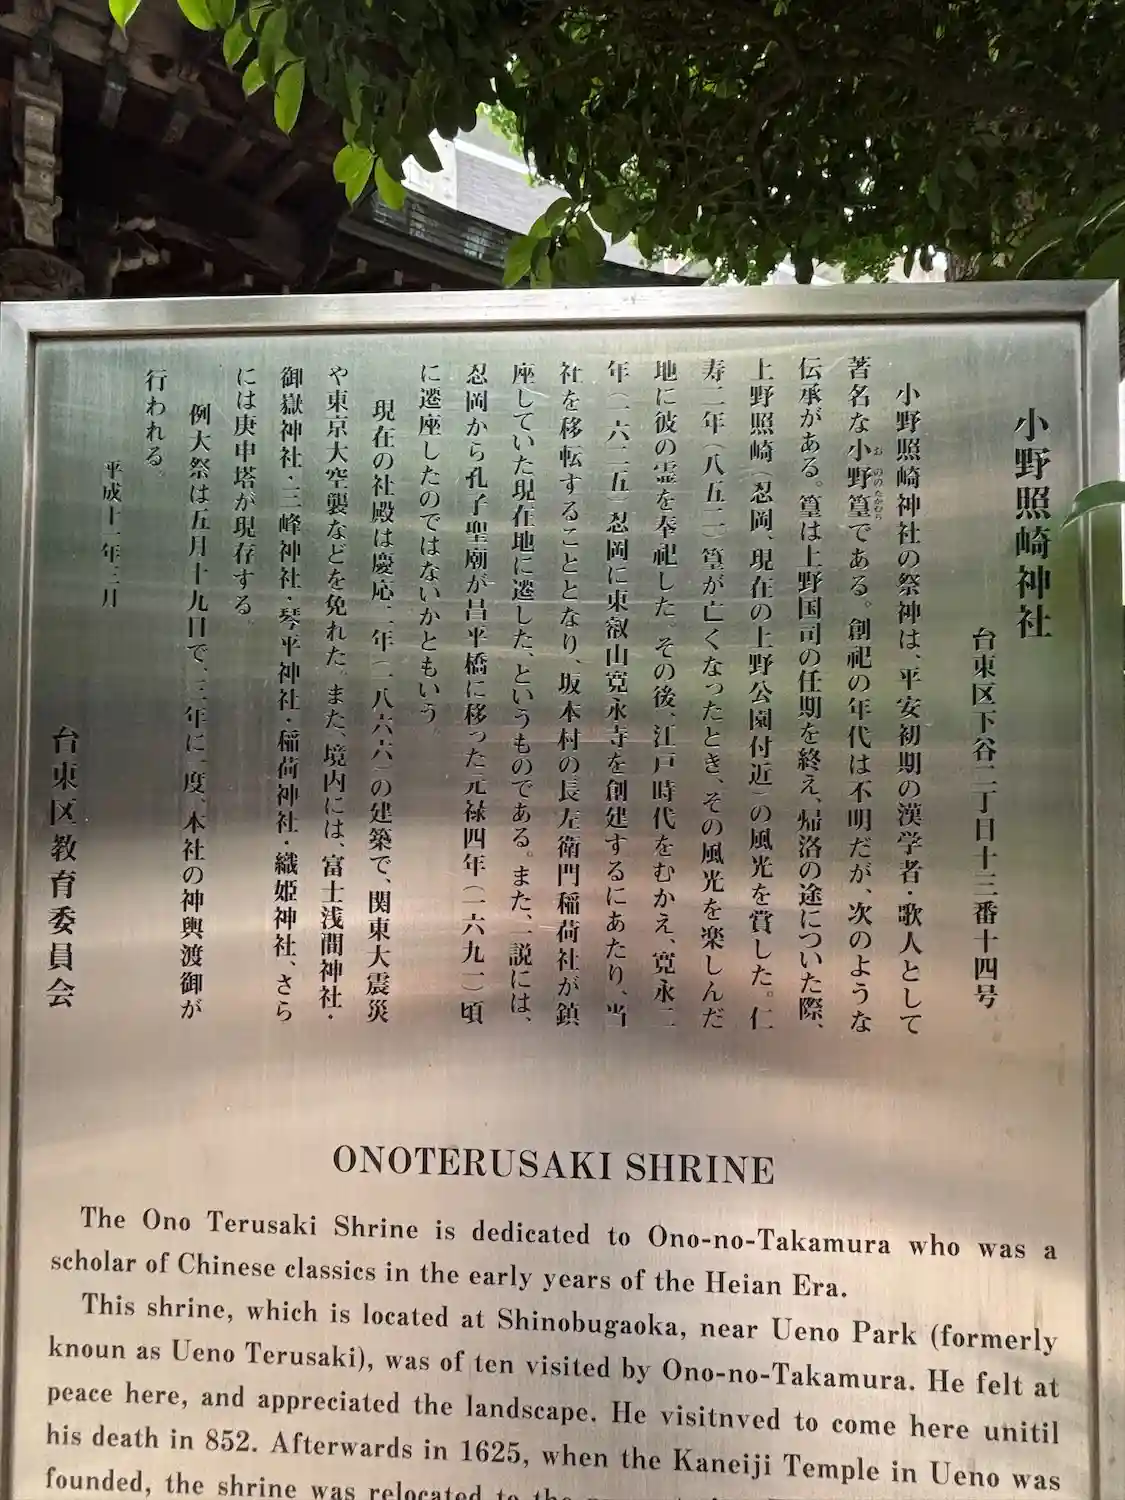 小野照崎神社
台東区下谷二丁目十三番十四号
小野照崎神社の祭神は、平安初期の漢学者・歌人として
著名な小野篁である。創祀の年代は不明だが、次のような
おののたかむら
伝承がある。篁は上野国司の任期を終え、帰洛の途についた際、
上野照崎(忍岡、現在の上野公園付近)の風光を賞した。仁
寿二年(八五二)篁が亡くなったとき、その風光を楽しんだ
地に彼の霊を奉祀した。その後、江戸時代をむかえ、寛永二
年(一六二五)忍岡に東叡山寛永寺を創建するにあたり、当
社を移転することとなり、坂本村の長左衛門稲荷社が鎮
座していた現在地に遷した、というものである。また、一説には、
忍岡から孔子聖廟が昌平橋に移った元禄四年(一六九一)頃
に遷座したのではないかともいう。
現在の社殿は慶応二年(一八六六)の建築で、関東大震災
や東京大空襲などを免れた。また、境内には、富士浅間神社・
御嶽神社・三峰神社・琴平神社・稲荷神社・織姫神社、さら
には庚申塔が現存する。
例大祭は五月十九日で、三年に一度、本社の神輿渡御が
行われる。
平成十一年三月
台東区教育委員会
ONOTERUSAKI SHRINE
The Ono Terusaki Shrine is dedicated to Ono-no-Takamura who was a
scholar of Chinese classics in the early years of the Heian Era.
This shrine, which is located at Shinobugaoka, near Ueno Park (formerly
knoun as Ueno Terusaki), was of ten visited by Ono-no-Takamura. He felt at
peace here, and appreciated the landscape. He visitnved to come here unitil
his death in 852. Afterwards in 1625, when the Kaneiji Temple in Ueno was
founded, the shrine was relocated to the